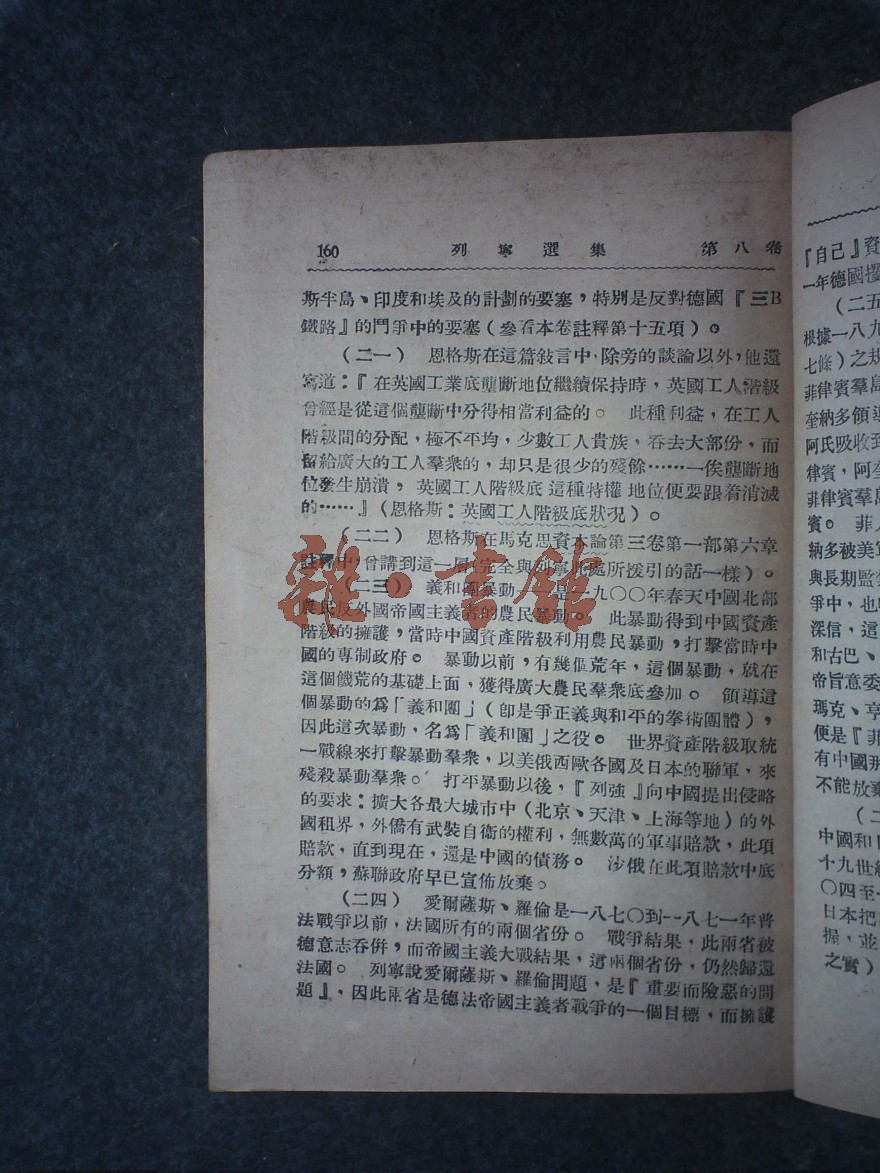 160 列寧選集 第八卷
斯半島、印度和埃及的計劃的要塞，特別是反對德國『三B
鐵路』的鬥爭中的要塞（參看本卷註釋第十五項）。
（二一） 恩格斯在這篇敍言中，除旁的談論以外，他還
寫道：『在英國工業底壟斷地位繼續保持時，英國工人階級
曾經是從這個壟斷中分得相當利益的。 此種利益，在工人
階級間的分配，極不平均，少數工人貴族，吞去大部份，而
留給廣大的工人羣衆的，却只是很少的殘餘………一俟壟斷地
位發生崩潰，英國工人階級底這種特權地位便要跟着消滅
的……』（恩格斯：英國工人階級底狀况）。
（二二） 恩格斯在馬克思資本論第三卷第一部第六章
註釋中，曾講到這一層（完全與列寧此處所援引的話一樣）。
（二三） 義和團暴動，是一九〇〇年春天中國北部
農民反外國帝國主義者的農民暴動。 此暴動得到中國資產
階級的擁護，當時中國資產階級利用農民暴動，打擊當時中
國的專制政府。 暴動以前，有幾個荒年，這個暴動，就在
這個饑荒的基礎上面，獲得廣大農民羣衆底參加。 領導這
個暴動的爲「義和團」（卽是爭正義與和平的拳術團體），
因此這次暴動，名爲「義和團」之役。 世界資產階級取統
一戰線來打擊暴動羣衆，以美俄西歐各國及日本的聯軍，來
殘殺暴動羣衆。 打平暴動以後，『列強』向中國提出侵略
的要求：擴大各最大城市中（北京、天津、上海等地）的外
國租界，外僑有武裝自衛的權利，無數萬的軍事賠款，此項
賠款，直到現在，還是中國的債務。 沙俄在此項賠款中底
分額，蘇聯政府早已宣佈放棄。
（二四） 愛爾薩斯、羅倫是一八七〇到一八七一年普
法戰爭以前，法國所有的兩個省份。 戰爭結果，此兩省被
德意志吞併，而帝國主義大戰結果，這兩個省份，仍然歸還
法國。 列寧說愛爾薩斯、羅倫問題，是『重要而險惡的問
題』，因此兩省是德法帝國主義者戰爭的一個目標，而擁護
『自己』資
一年德國
（二五
根據一八九
七條）之規
菲律賓羣島
奎納多領導
阿氏吸收到
律賓，阿奎
菲律賓羣島
賓。 菲人
納多被美軍
與長期監
爭中，也
深信，這
和古巴、
帝旨意委
瑪克、亨
便是『菲
有中國
不能放棄
（二
中國和日
十九世紀
〇四至一
日本把
握，並
之實）
雜·書館